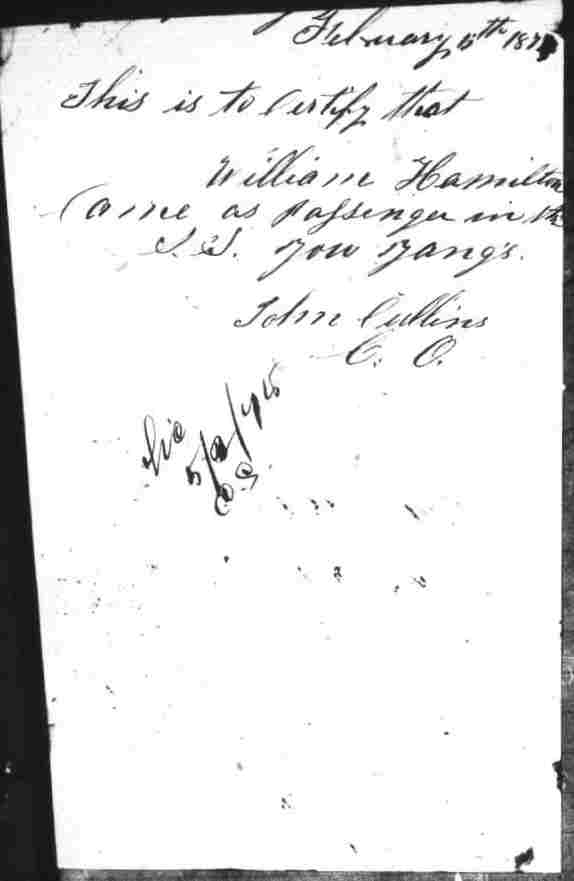 February 5th 187
This is to Certify that
William Hamilton
Came as passenger in the
S. S. You Yang's.
John Cullins
C. O.
5/2/75